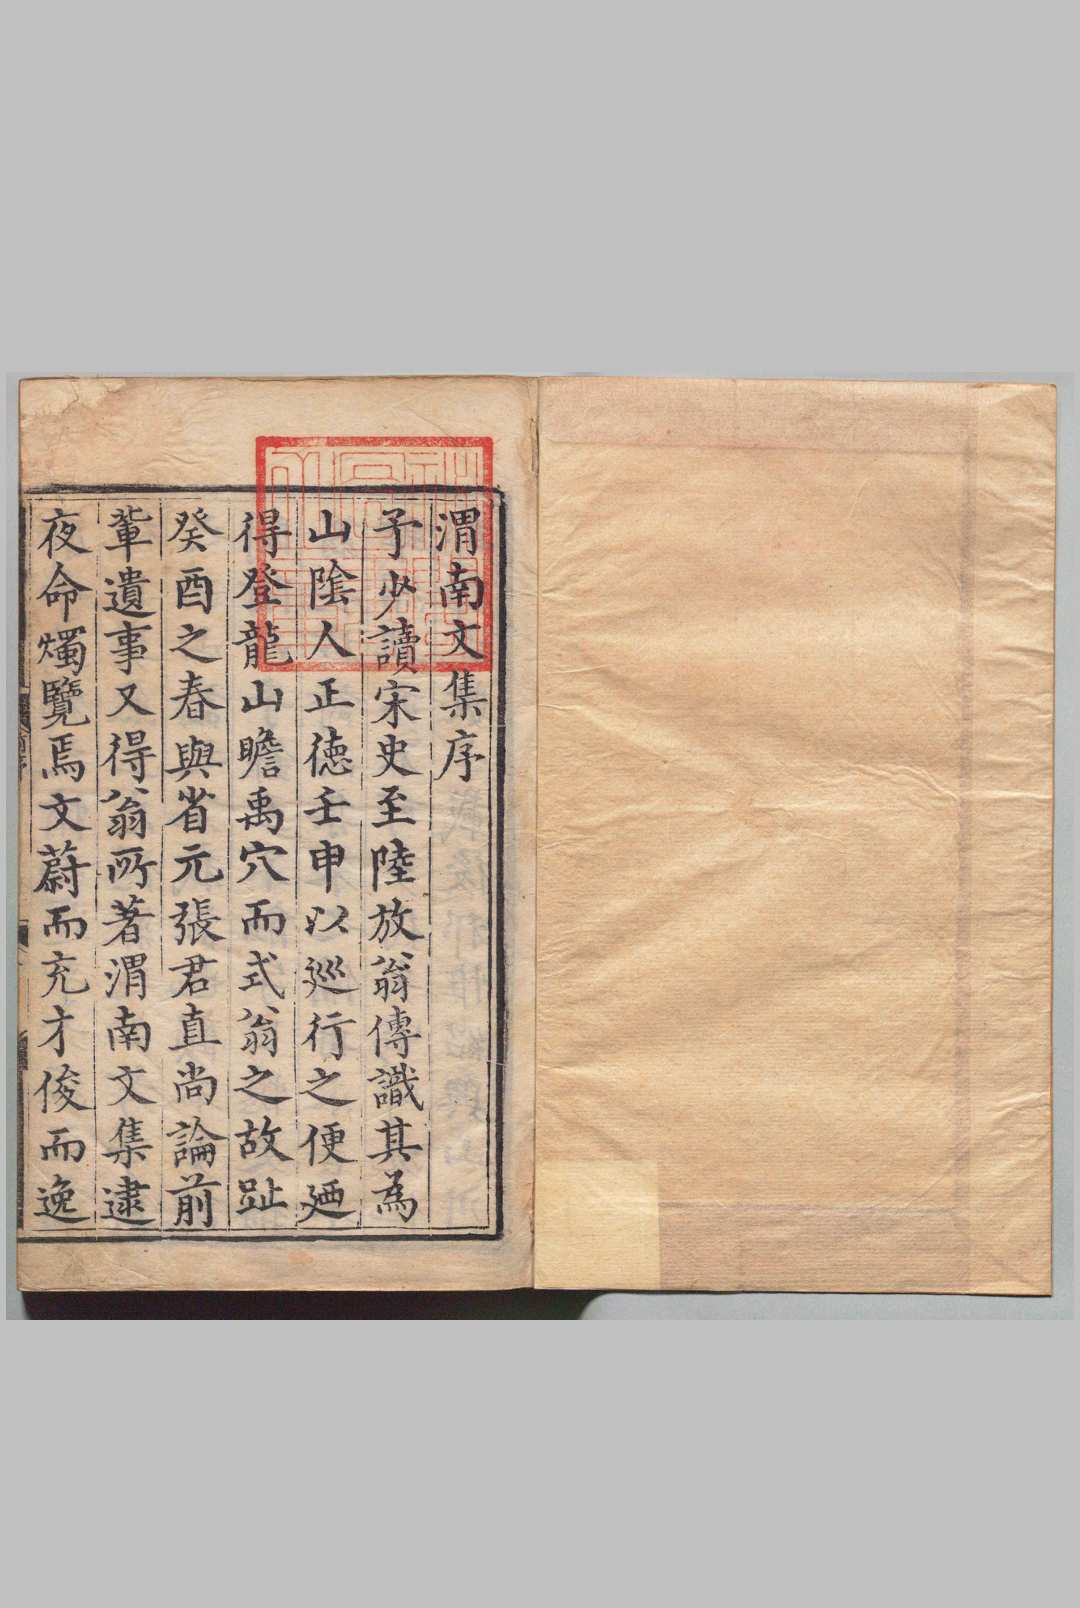 渭南文集序
予少讀宋史至陸放翁傳識其為
山陰人正徳壬申以巡行之便廼
得登龍山瞻禹穴而式翁之故趾
癸酉之春與省元張君直尚論前
輩遺事又得翁所著渭南文集逮
夜命燭覽焉文蔚而充才俊而逸